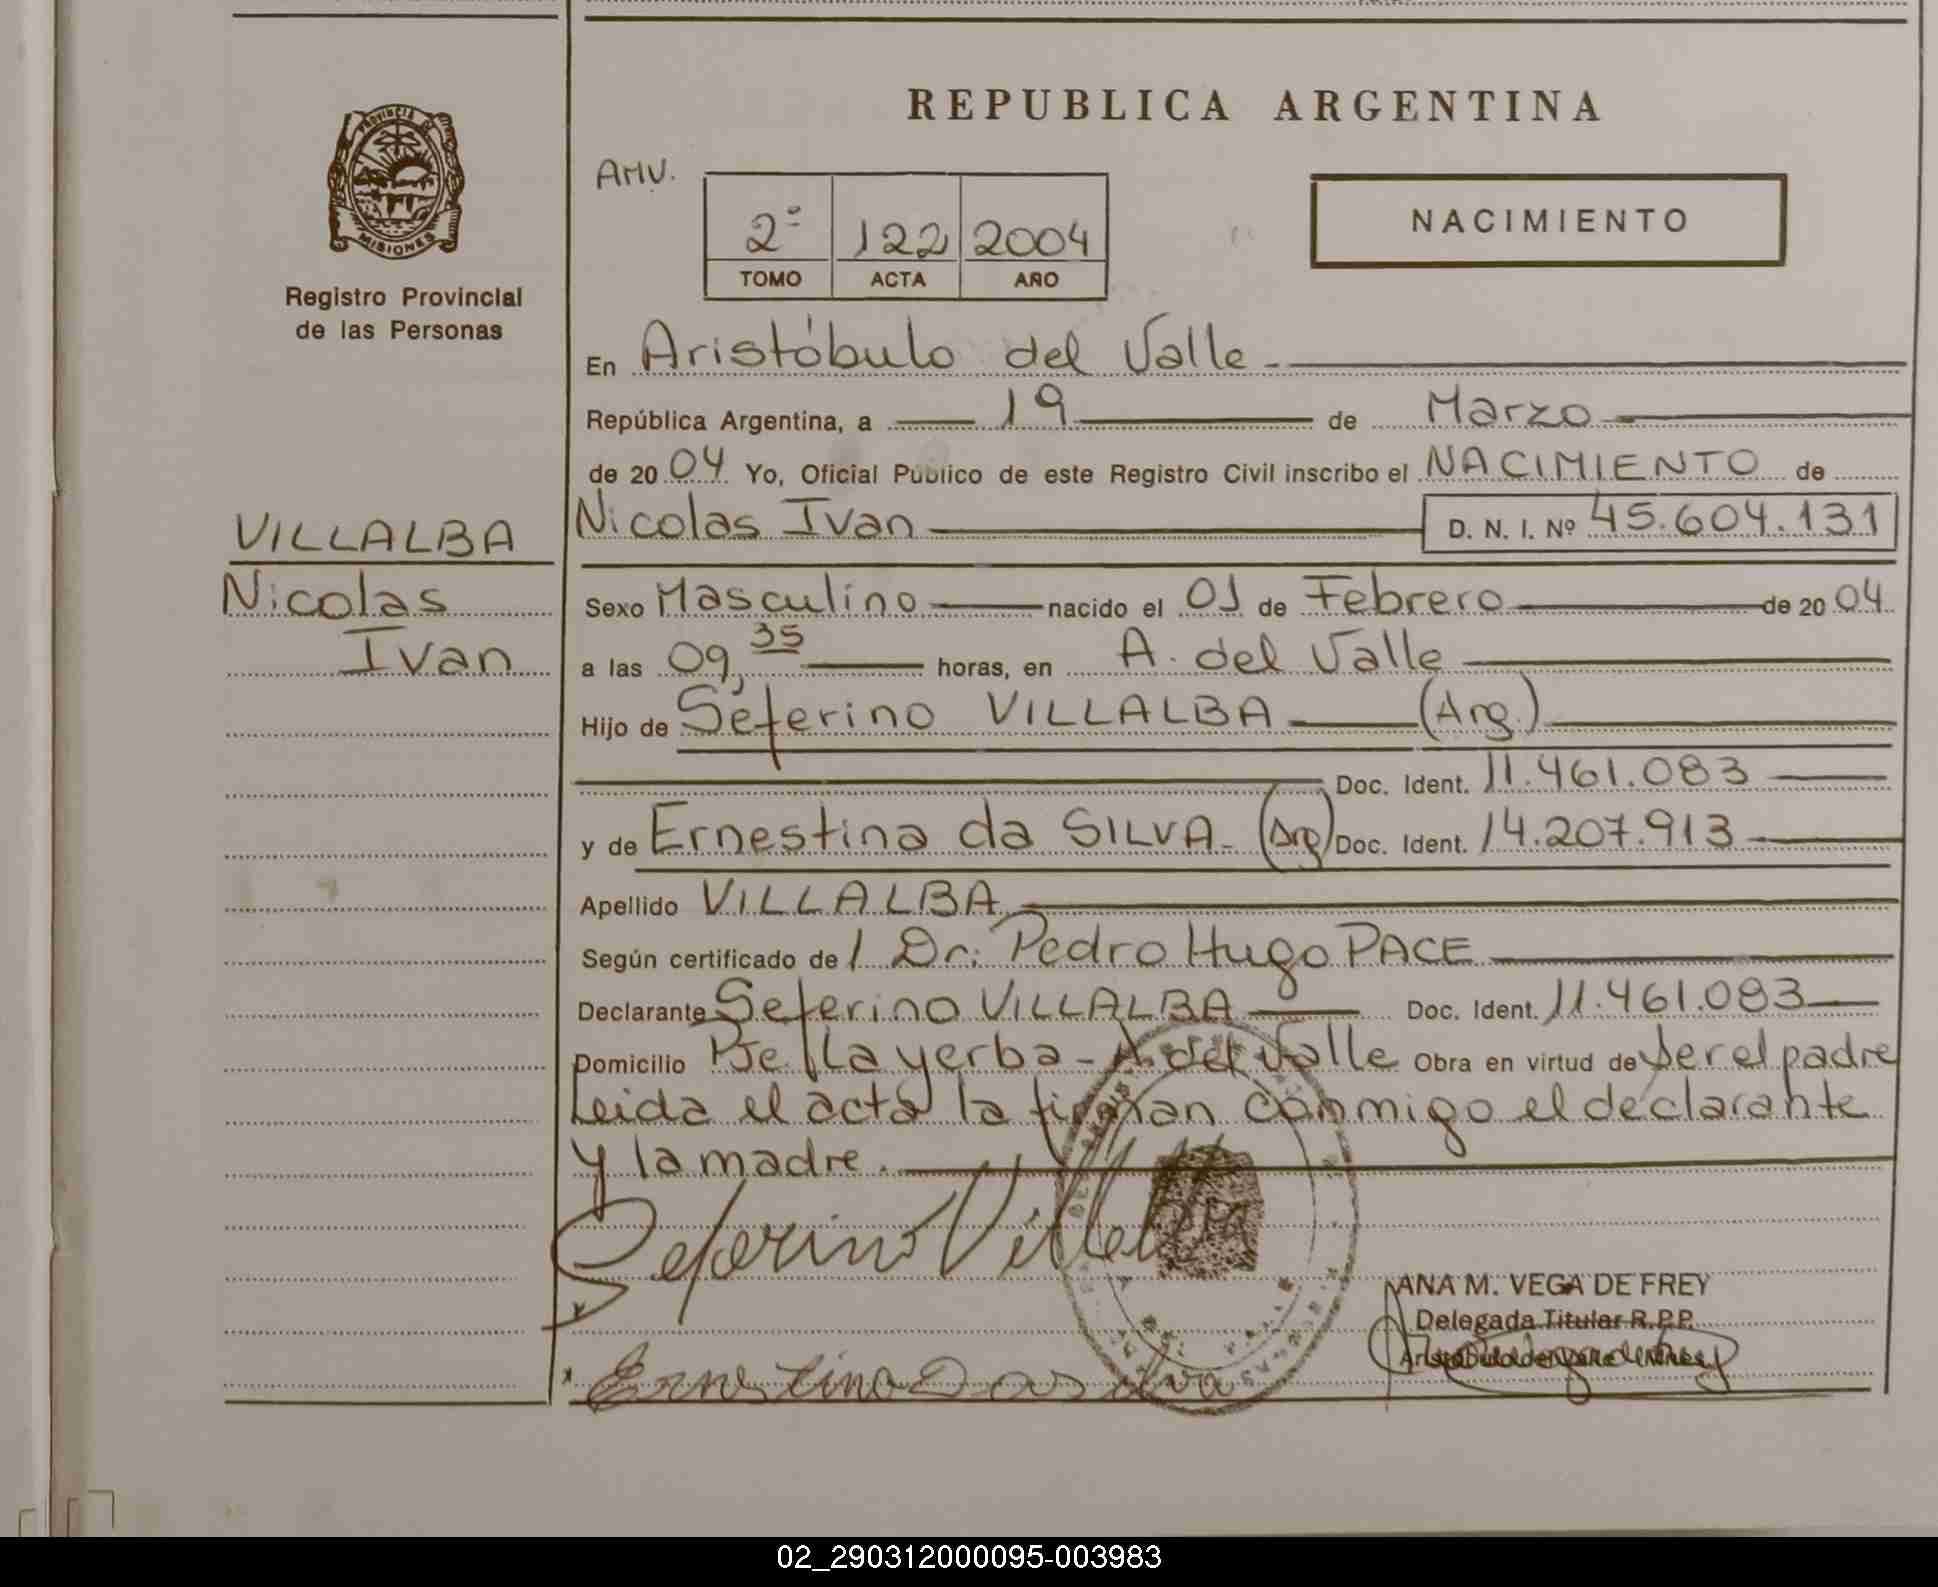 REPUBLICA ARGENTINA
PROVINCIA DE
MISIONES
Registro Provincial
de las Personas
AMV.
2º 122 2004
TOMO ACTA AÑO
NACIMIENTO
En Aristóbulo del Valle
República Argentina, a 19 de Marzo
de 2004 Yo, Oficial Público de este Registro Civil inscribo el NACIMIENTO de
VILLALBA
Nicolas
Ivan
Nicolas Ivan D. N. I. Nº 45.604.131
Sexo Masculino nacido el 01 de Febrero de 2004
a las 09,35 horas, en A. del Valle
Hijo de Seferino VILLALBA (Arg.)
Doc. Ident. 11.461.083
y de Ernestina da SILVA (Arg) Doc. Ident. 14.207.913
Apellido VILLALBA
Según certificado de 1 Dr: Pedro Hugo PACE
Declarante Seferino VILLALBA Doc. Ident. 11.461.083
Domicilio Pje. La yerba - A. del Valle Obra en virtud de ser el padre
Leida el acta la firman conmigo el declarante
y la madre.
Seferino Villalba
Ernestina Da silva
ANA M. VEGA DE FREY
Delegada Titular R.P.P.
02_290312000095-003983